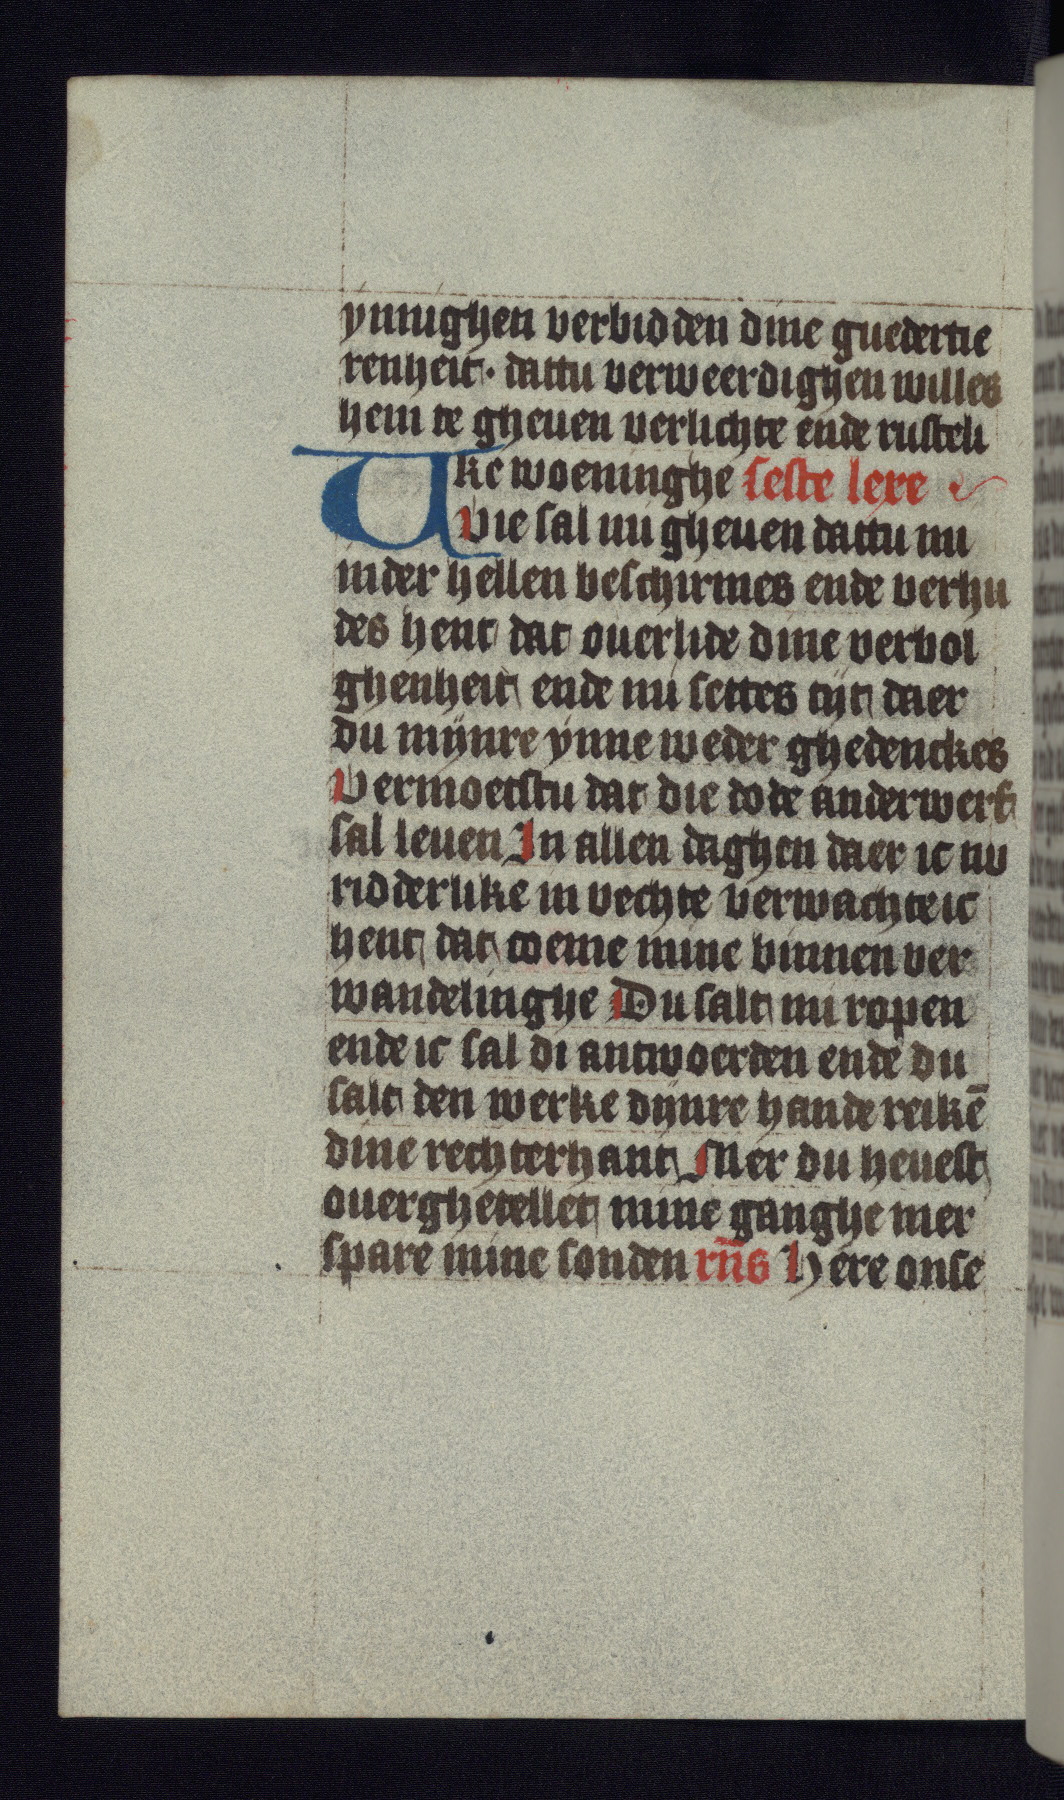 ynnighen verbidden dine guedertie
renheit · dattu verweerdighen willes
hem te gheuen verlichte ende rusteli
ke woeninghe seste lere
Wie sal mi gheuen dattu mi
inder hellen beschirmes ende verhu
des hent dat ouerlide dine verbol
ghenheit ende mi settes tijt daer
du mijnre ynne weder ghedenckes
Vermoetstu dat die dode anderwerf
sal leuen In allen daghen daer ic nv
ridderlike in vechte verwachte ic
hent dat coeme mine binnen ver
wandelinghe Du salt mi ropen
ende ic sal di antwoerden ende du
salt den werke dijnre hande reikē
dine rechterhant Mer du heuest
ouerghetellet mine ganghe mer
spare mine sonden rn̄s Here onse